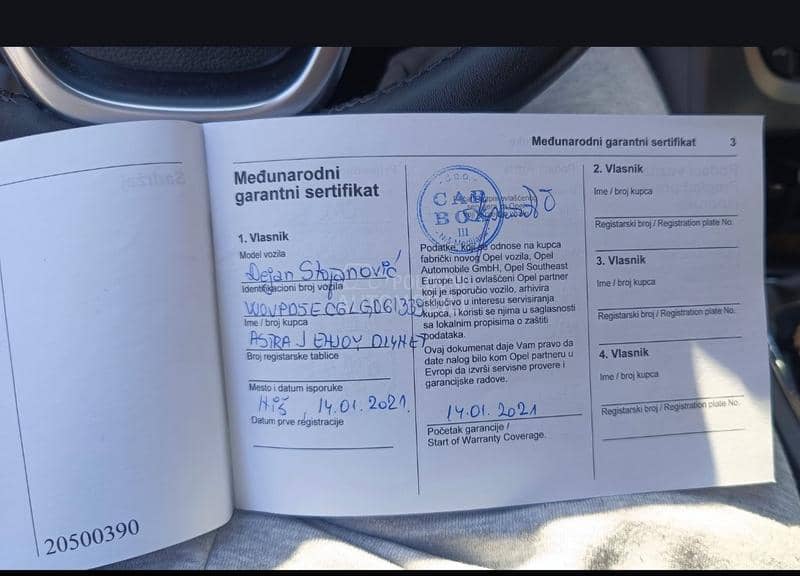 Međunarodni garantni sertifikat 3
Međunarodni
garantni sertifikat
1. Vlasnik
Model vozila
Dejan Stojanović
Identifikacioni broj vozila
Ime / broj kupca
ASTRA J ENJOY
Broj registarske tablice
Mesto i datum isporuke
Niš, 14.01.2021.
Datum prve registracije
D.O.O.
CAR
BOX
III
Podatke, koji se odnose na kupca
fabrički novog Opel vozila, Opel
Automobile GmbH, Opel Southeast
Europe Llc i ovlašćeni Opel partner
koji je isporučio vozilo, arhivira
isključivo u interesu servisiranja
kupca, i koristi se njima u saglasnosti
sa lokalnim propisima o zaštiti
podataka.
Ovaj dokumenat daje Vam pravo da
date nalog bilo kom Opel partneru u
Evropi da izvrši servisne provere i
garancijske radove.
14.01.2021
Početak garancije /
Start of Warranty Coverage.
2. Vlasnik
Ime / broj kupca
Registarski broj / Registration plate No.
3. Vlasnik
Ime / broj kupca
Registarski broj / Registration plate No.
4. Vlasnik
Ime / broj kupca
Registarski broj / Registration plate No.
20500390